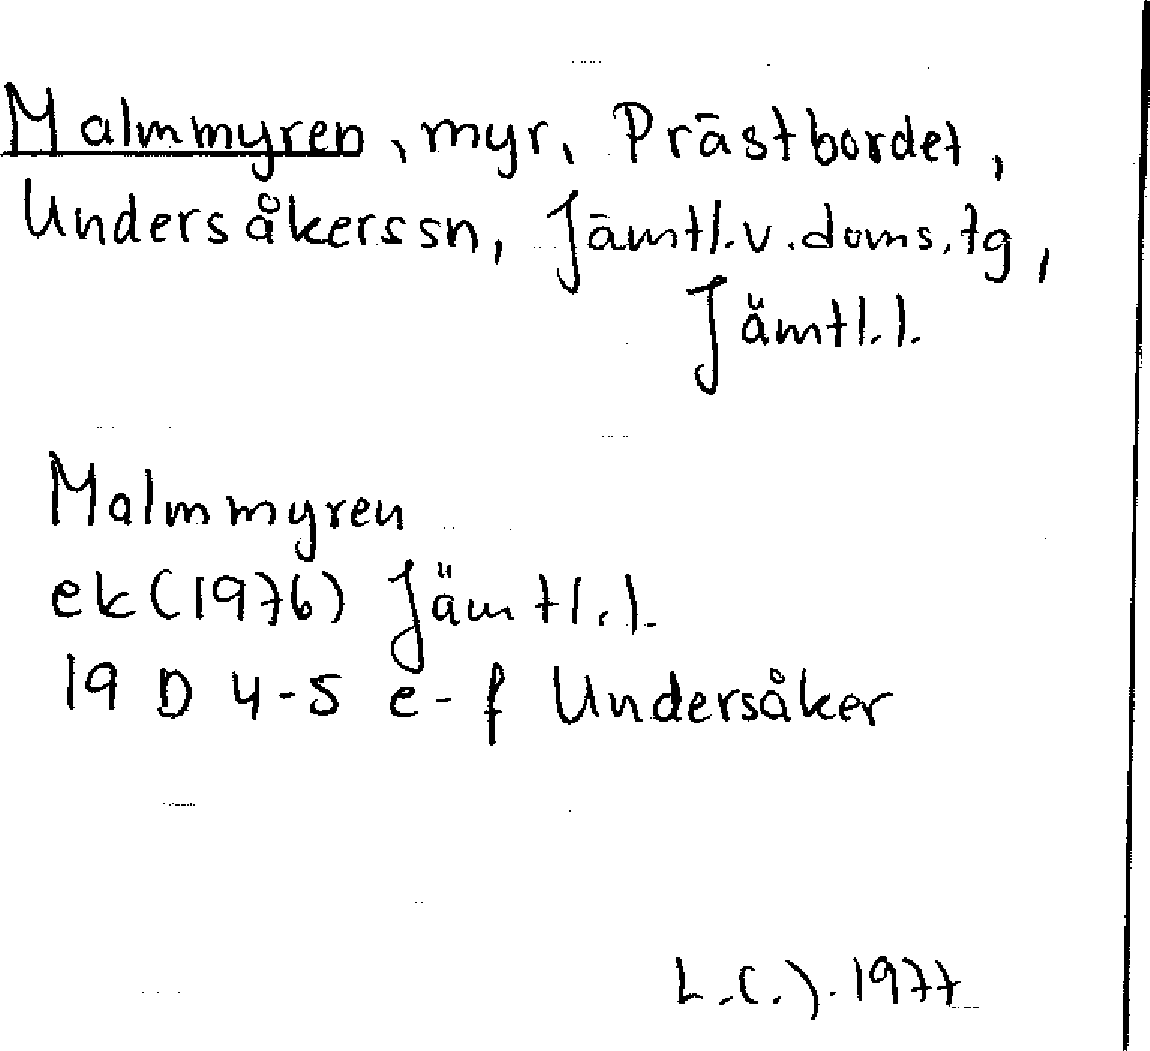 Malmmyren, myr, Prästbordet,
Undersåkerssn, Jämtl.v.doms.tg,
Jämtl.l.
Malmmyren
ek(1976) Jämtl.l.
19 D 4-5 e-f Undersåker
L.C.J. 1977